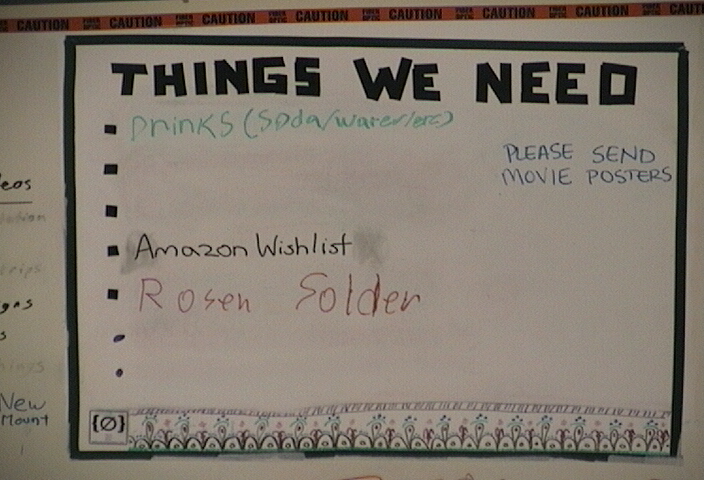 CAUTION CAUTION CAUTION CAUTION CAUTION CAUTION CAUTION
THINGS WE NEED
Drinks (Soda/water/etc)
PLEASE SEND
MOVIE POSTERS
Amazon Wishlist
Rosen Solder
{Ø}
New
Mount